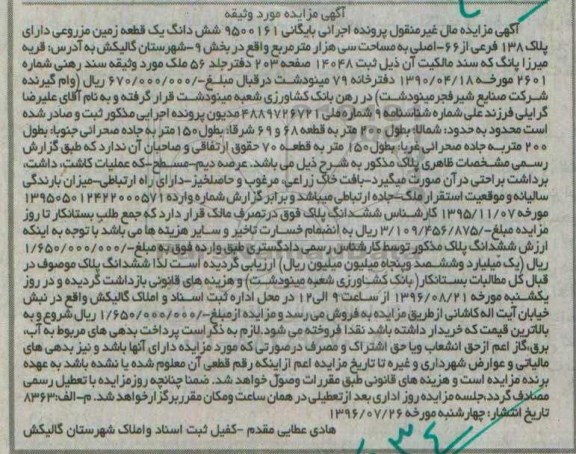 آگهی مزایده مورد وثیقه
آگهی مزایده مال غیرمنقول پرونده اجرائی بایگانی ۹۵۰۰۱۶۱ شش دانگ یک قطعه زمین مزروعی دارای
پلاک ۱۳۸ فرعی از۶۶-اصلی به مساحت سی هزار مترمربع واقع در بخش ۹-شهرستان گالیکش به آدرس: قریه
میرزا پانگ که سند مالکیت آن ذیل ثبت ۱۴۰۴۸ صفحه ۲۰۳ دفترجلد ۵۶ ملک مورد وثیقه سند رهنی شماره
۲۶۰۱ مورخه ۱۳۹۰/۰۴/۱۸ دفترخانه ۷۹ مینودشت درقبال مبلغ-/۶۷۰/۰۰۰/۰۰۰ ریال (وام گیرنده
شرکت صنایع شیرفجرمینودشت) در رهن بانک کشاورزی شعبه مینودشت قرار گرفته و به نام آقای علیرضا
گرایلی فرزند علی شماره شناسنامه ۹ شماره ملی ۴۸۸۹۷۲۶۷۲۱ مدیون پرونده اجرایی مذکور ثبت و صادر شده
است محدود به حدود: شمالا: بطول ۲۰۰ متر به قطعه ۶۸ و ۶۹ شرقا: بطول۱۵۰متر به جاده صحرائی جنوبا: بطول
۲۰۰ متربه جاده صحرائی غربا: بطول ۱۵۰ متر به قطعه ۷۰ حقوق ارتفاقی و صاحبان آن ندارد که طبق گزارش
رسمی مشخصات ظاهری پلاک مذکور به شرح ذیل می باشد. عرصه دیم-مسطح-که عملیات کاشت، داشت،
برداشت براحتی درآن صورت میگیرد-بافت خاک زراعی، مرغوب و حاصلخیز-دارای راه ارتباطی-میزان بارندگی
سالیانه و موقعیت استقرار ملک-جاده ارتباطی میباشد و برابر گزارش شماره وارده ۱۳۹۵۰۵۰۱۲۴۲۲۰۰۰۵۷۱
مورخه ۱۳۹۵/۱۱/۰۷ کارشناس ششدانگ پلاک فوق درتصرف مالک قرار دارد که جمع طلب بستانکار تا روز
مزایده مبلغ-/۳/۱۰۹/۴۵۶/۸۷۵ ریال به انضمام خسارت تاخیر و سایر هزینه ها می باشد با توجه به اینکه
ارزش ششدانگ پلاک مذکور توسط کارشناس رسمی دادگستری طبق وارده فوق به مبلغ-/۱/۶۵۰/۰۰۰/۰۰۰
ریال (یک میلیارد وششصد وپنجاه میلیون میلیون ریال) ارزیابی گردیده است لذا ششدانگ پلاک موصوف در
قبال کل مطالبات بستانکار( بانک کشاورزی شعبه مینودشت) و هزینه های قانونی بازداشت گردیده و در روز
یکشنبه مورخه ۱۳۹۶/۰۸/۲۱ از ساعت ۹ الی۱۲ در محل اداره ثبت اسناد و املاک گالیکش واقع در نبش
خیابان آیت اله کاشانی ازطریق مزایده به فروش می رسد و مزایده ازمبلغ-/۱/۶۵۰/۰۰۰/۰۰۰ ریال شروع و به
بالاترین قیمت که خریدار داشته باشد نقدا فروخته می شود.لازم به ذکر است پرداخت بدهی های مربوط به آب،
برق،گاز اعم ازحق انشعاب ویا حق اشتراک و مصرف درصورتی که مورد مزایده دارای آنها باشد و نیز بدهی های
مالیاتی و عوارض شهرداری و غیره تا تاریخ مزایده اعم ازاینکه رقم قطعی آن معلوم شده یا نشده باشد به عهده
برنده مزایده است و هزینه های قانونی طبق مقررات وصول خواهد شد. ضمنا چنانچه روزمزایده با تعطیل رسمی
مصادف گردد،جلسه مزایده روز اداری بعد ازتعطیلی در همان ساعت ومکان مقرربرگزارخواهد شد. م-الف:۸۳۶۳
تاریخ انتشار: چهارشنبه مورخه ۱۳۹۶/۰۷/۲۶
هادی عطایی مقدم -کفیل ثبت اسناد واملاک شهرستان گالیکش